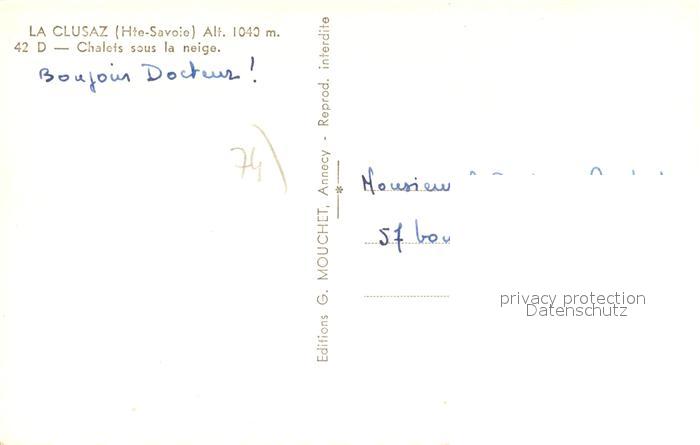 LA CLUSAZ (Hte-Savoie) Alt. 1040 m.
42 D — Chalets sous la neige.
Boujour Docteur !
74)
Editions G. MOUCHET, Annecy - Reprod. interdite
Monsieur
57 bou
privacy protection
Datenschutz